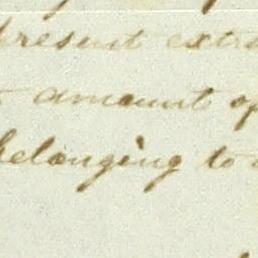 present extra
amount of
belonging to